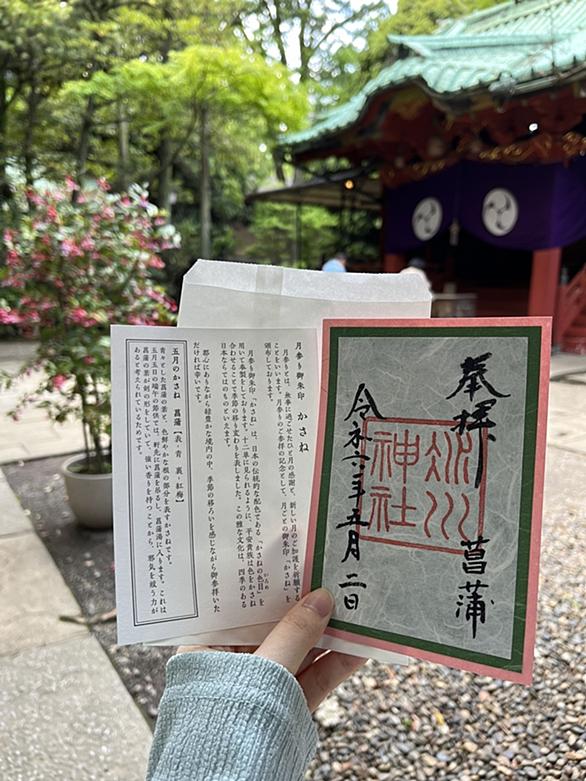 月参り御朱印 かさね
月参りとは、無事に過ごせたひと月の感謝と、新しい月のご加護を祈願する
ことをいいます。月参りのご参拝の記念として、月ごとの御朱印「かさね」を
頒布しております。
月参り御朱印「かさね」は、日本の伝統的な配色である「かさねの色目」を
用いて奉製をしております。十二単に見られるように、平安貴族は色をかさね
合わせることで季節の移り変わりを表しました。この雅な文化は、四季のある
日本ならではのものといえます。
都心にありながら緑豊かな境内の中、季節の移ろいを感じながら御参拝いた
だければ幸いです。
五月のかさね 菖蒲【表・青 裏・紅梅】
青々とした菖蒲の葉と、色鮮やかな花の部分を表すかさねです。
五月五日の端午の節供では、軒先に菖蒲を吊るし、菖蒲湯に入ります。これは
菖蒲の葉が剣の形をしていて、強い香りを持つことから、邪気を祓う力が
あると考えられているためです。
奉拝 菖蒲
氷川
神社
令和六年五月二日